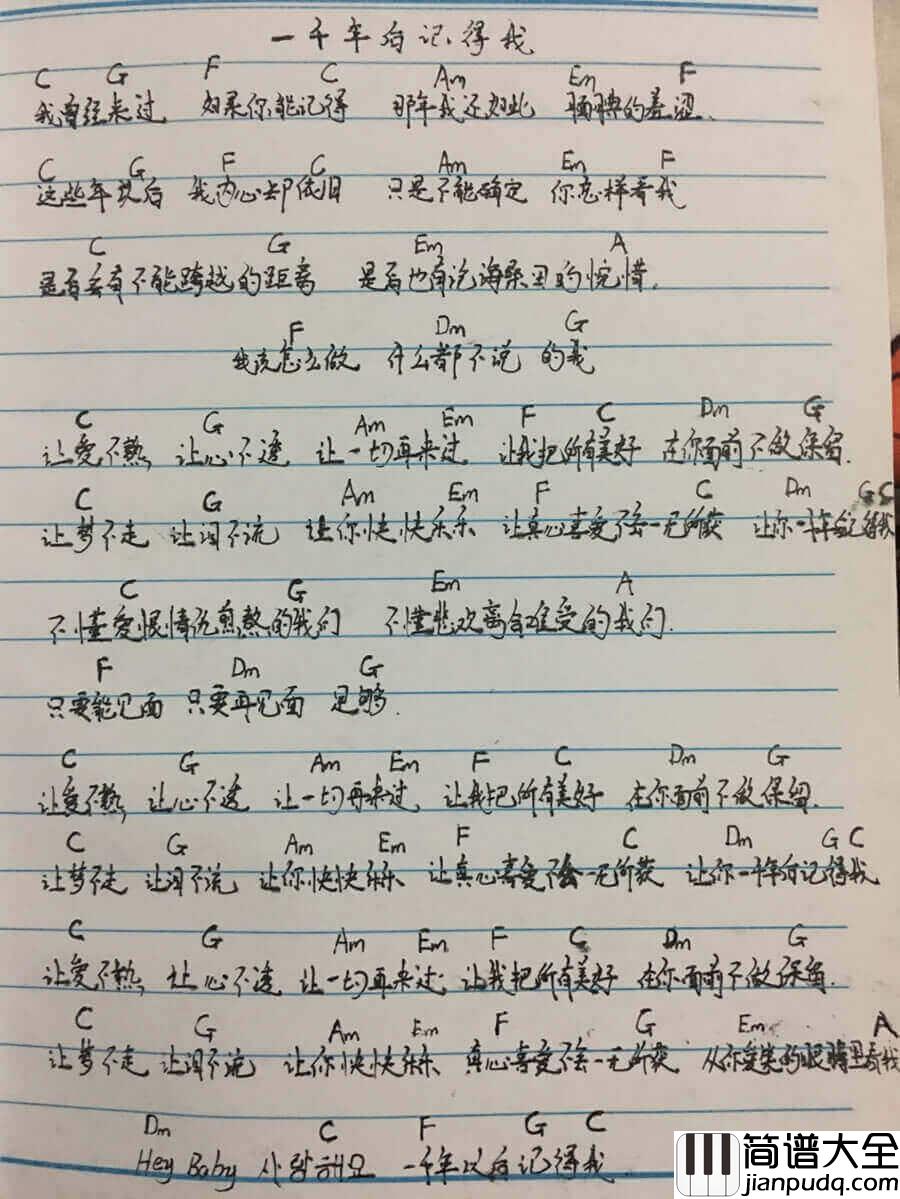 一千年后记得我
C G F C Am Em F
我曾经来过 如果你能记得 那年我还如此 腼腆的羞涩.
C G F C Am Em F
这些年以后 我内心却依旧 只是不能确定 你怎样看我
C G Em A
是否会有不能跨越的距离 是否也有沧海桑田的惋惜.
F Dm G
我该怎么做 什么都不说 的我
C G Am Em F C Dm G
让爱不熟 让心不透 让一切再来过 让我把所有美好 在你面前不做保留.
C G Am Em F C Dm G C
让梦不走 让泪不流 让你快快乐乐 让真心喜爱不会一无所获 让你一千年后记得我
C G Em A
不懂爱恨情仇煎熬的我们 不懂悲欢离合难受的我们.
F Dm G
只要能见面 只要再见面 足够.
C G Am Em F C Dm G
让爱不熟 让心不透 让一切再来过 让我把所有美好 在你面前不做保留.
C G Am Em F C Dm G C
让梦不走 让泪不流 让你快快乐乐 让真心喜爱不会一无所获 让你一千年后记得我
C G Am Em F C Dm G
让爱不熟 让心不透 让一切再来过 让我把所有美好 在你面前不做保留.
C G Am Em F G Em A
让梦不走 让泪不流 让你快快乐乐 真心喜爱不会一无所获 从你爱笑的眼睛里看我
Dm C F G C
Hey Baby 사랑해요 一千年以后记得我.
简谱大全
jianpudq.com